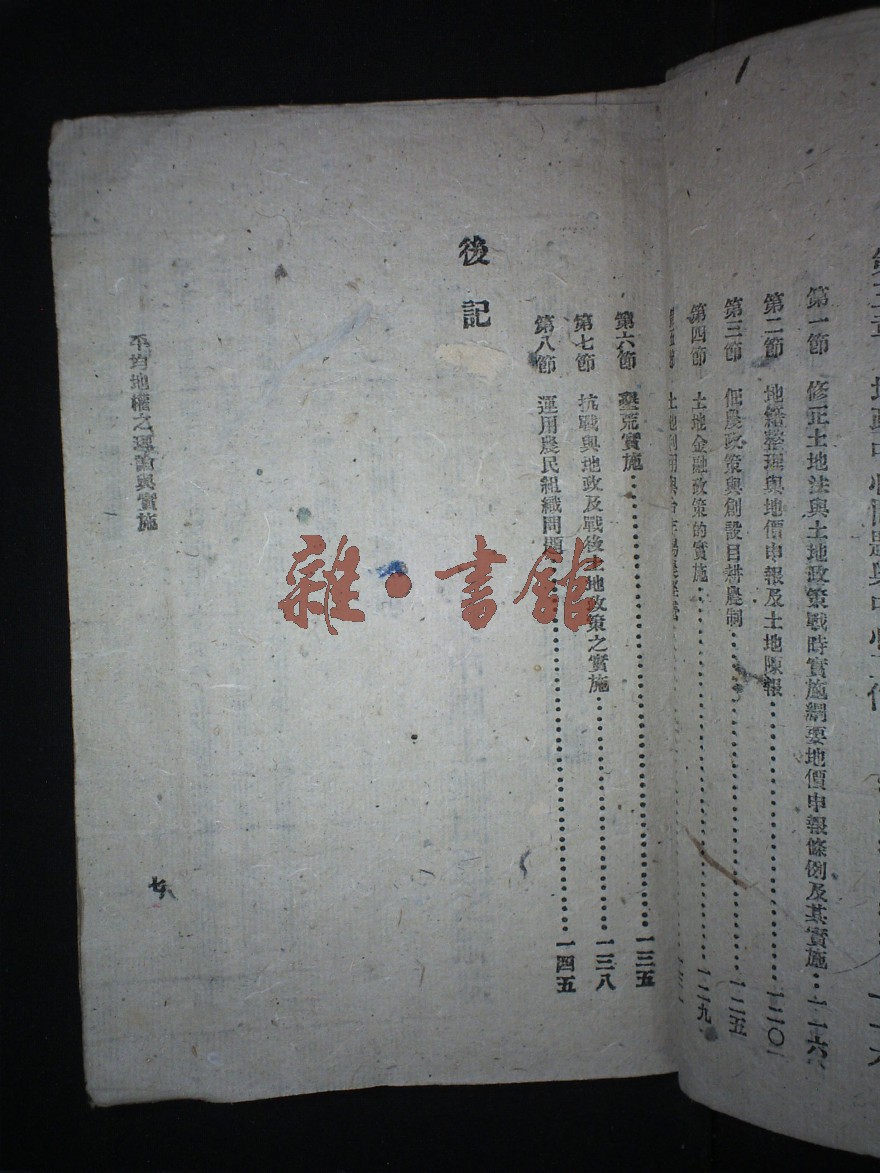 第一節 修正土地法與土地政策戰時實施綱要地價申報條例及其實施…一一六
第二節 地籍整理與地價申報及土地陳報…一二〇
第三節 佃農政策與創設自耕農制…一二五
第四節 土地金融政策的實施…一二九
第六節 墾荒實施…一三五
第七節 抗戰與地政及戰後土地政策之實施…一三八
第八節 運用農民組織問題…一四五
後記
平均地權之理論與實施
七
雜·書館